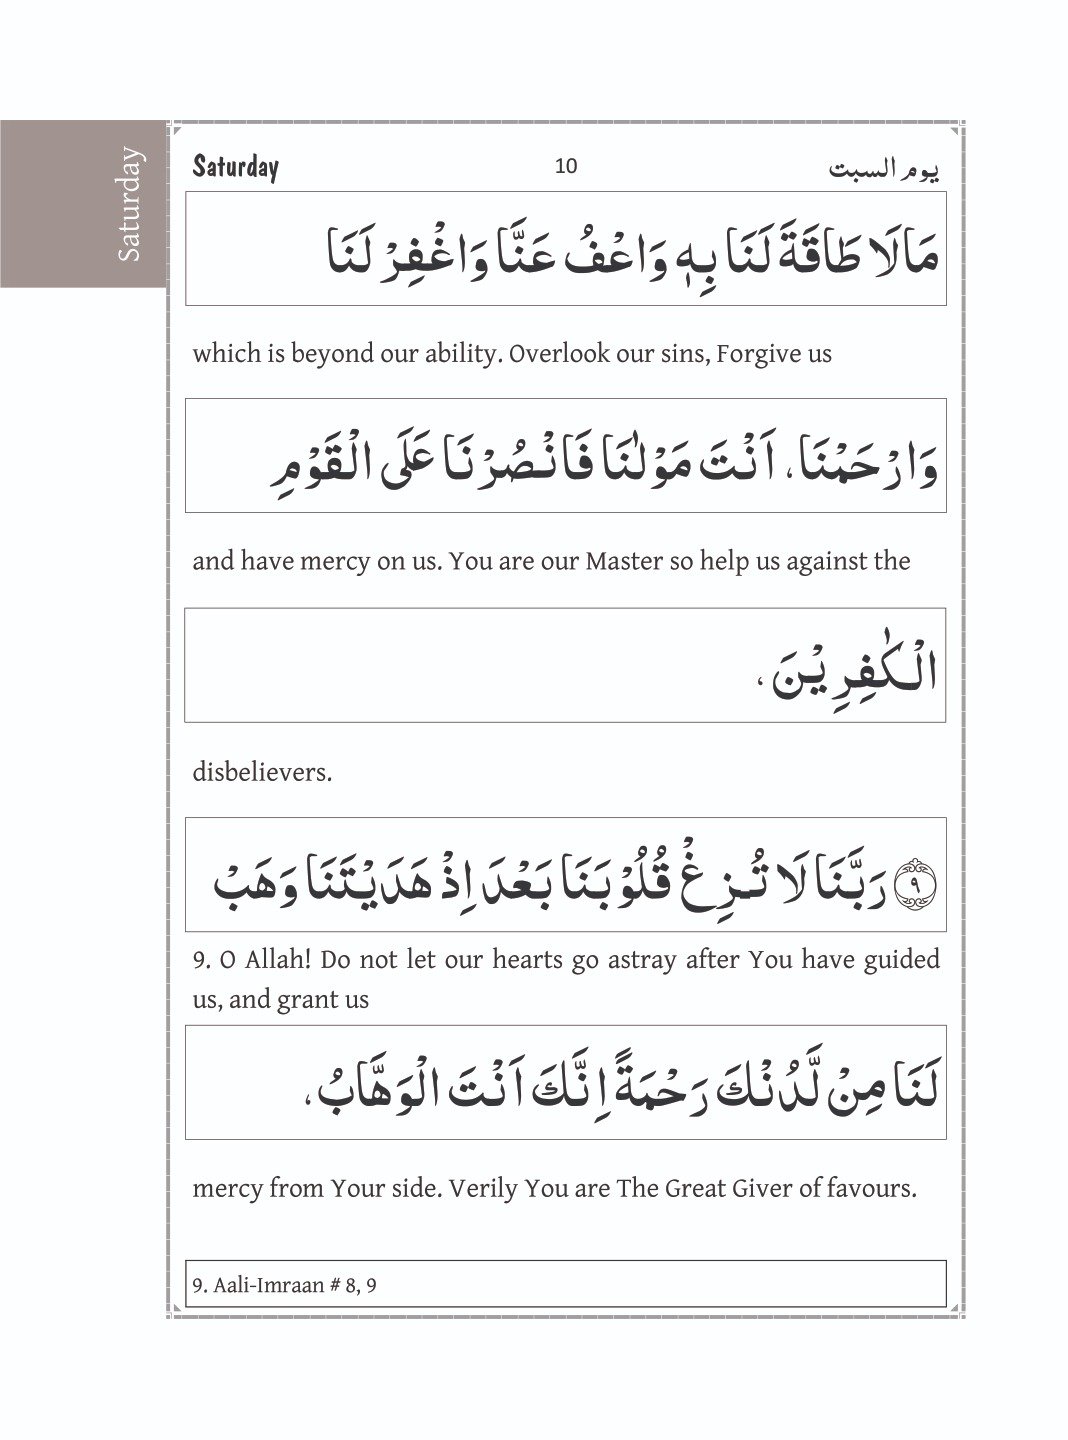 Saturday
Saturday 10 يوم السبت
مَالَا طَاقَةَ لَنَا بِهٖ وَاعْفُ عَنَّا وَاغْفِرْ لَنَا
which is beyond our ability. Overlook our sins, Forgive us
وَارْحَمْنَا، اَنْتَ مَوْلٰنَا فَانْصُرْنَا عَلَى الْقَوْمِ
and have mercy on us. You are our Master so help us against the
الْكٰفِرِيْنَ،
disbelievers.
۹ رَبَّنَا لَا تُزِغْ قُلُوْبَنَا بَعْدَ اِذْ هَدَيْتَنَا وَهَبْ
9. O Allah! Do not let our hearts go astray after You have guided
us, and grant us
لَنَا مِنْ لَّدُنْكَ رَحْمَةً اِنَّكَ اَنْتَ الْوَهَّابُ،
mercy from Your side. Verily You are The Great Giver of favours.
9. Aali-Imraan # 8, 9